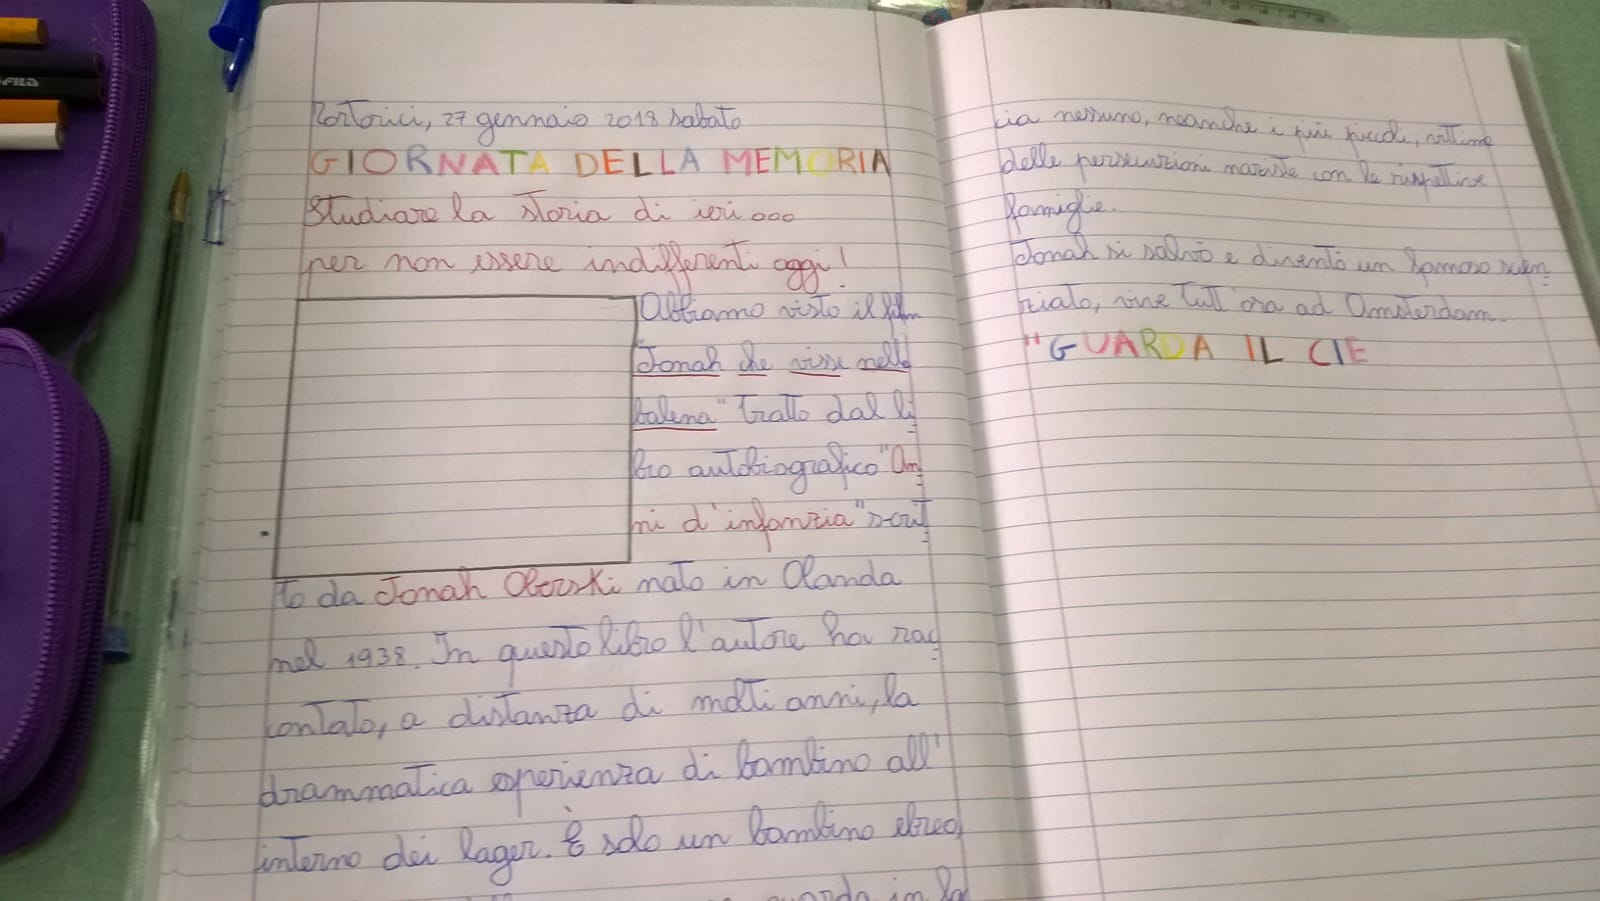 FILA
Tortorici, 27 gennaio 2018 sabato
GIORNATA DELLA MEMORIA
Studiare la storia di ieri ooo
per non essere indifferenti oggi!
Abbiamo visto il film
"Jonah che visse nella
balena" tratto dal li
bro autobiografico "An
ni d'infanzia" scrit
to da Jonah Oberski nato in Olanda
nel 1938. In questo libro l'autore ha rac
contato, a distanza di molti anni, la
drammatica esperienza di bambino all'
interno dei lager. È solo un bambino ebreo,
in la
cia nessuno, neanche i più piccoli, vittime
delle persecuzioni naziste con le rispettive
famiglie.
Jonah si salvò e diventò un famoso scien
ziato, vive tutt'ora ad Amsterdam.
"GUARDA IL CIE